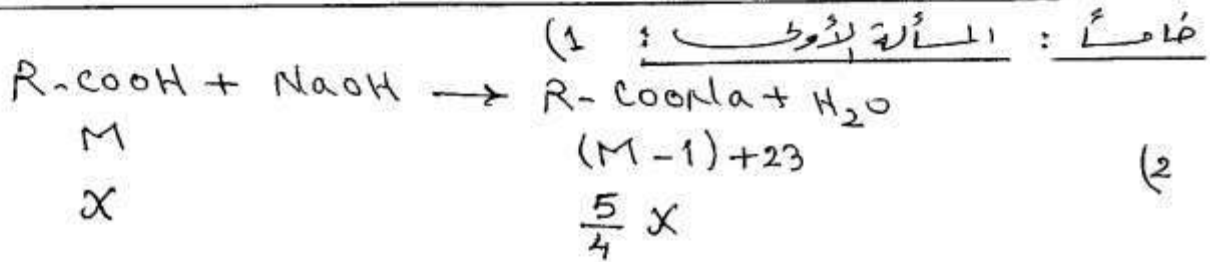 خامساً : المسألة الأولى : 1)
R-COOH + NaOH → R-COONa + H₂O
M (M-1)+23 2)
X 5/4 X